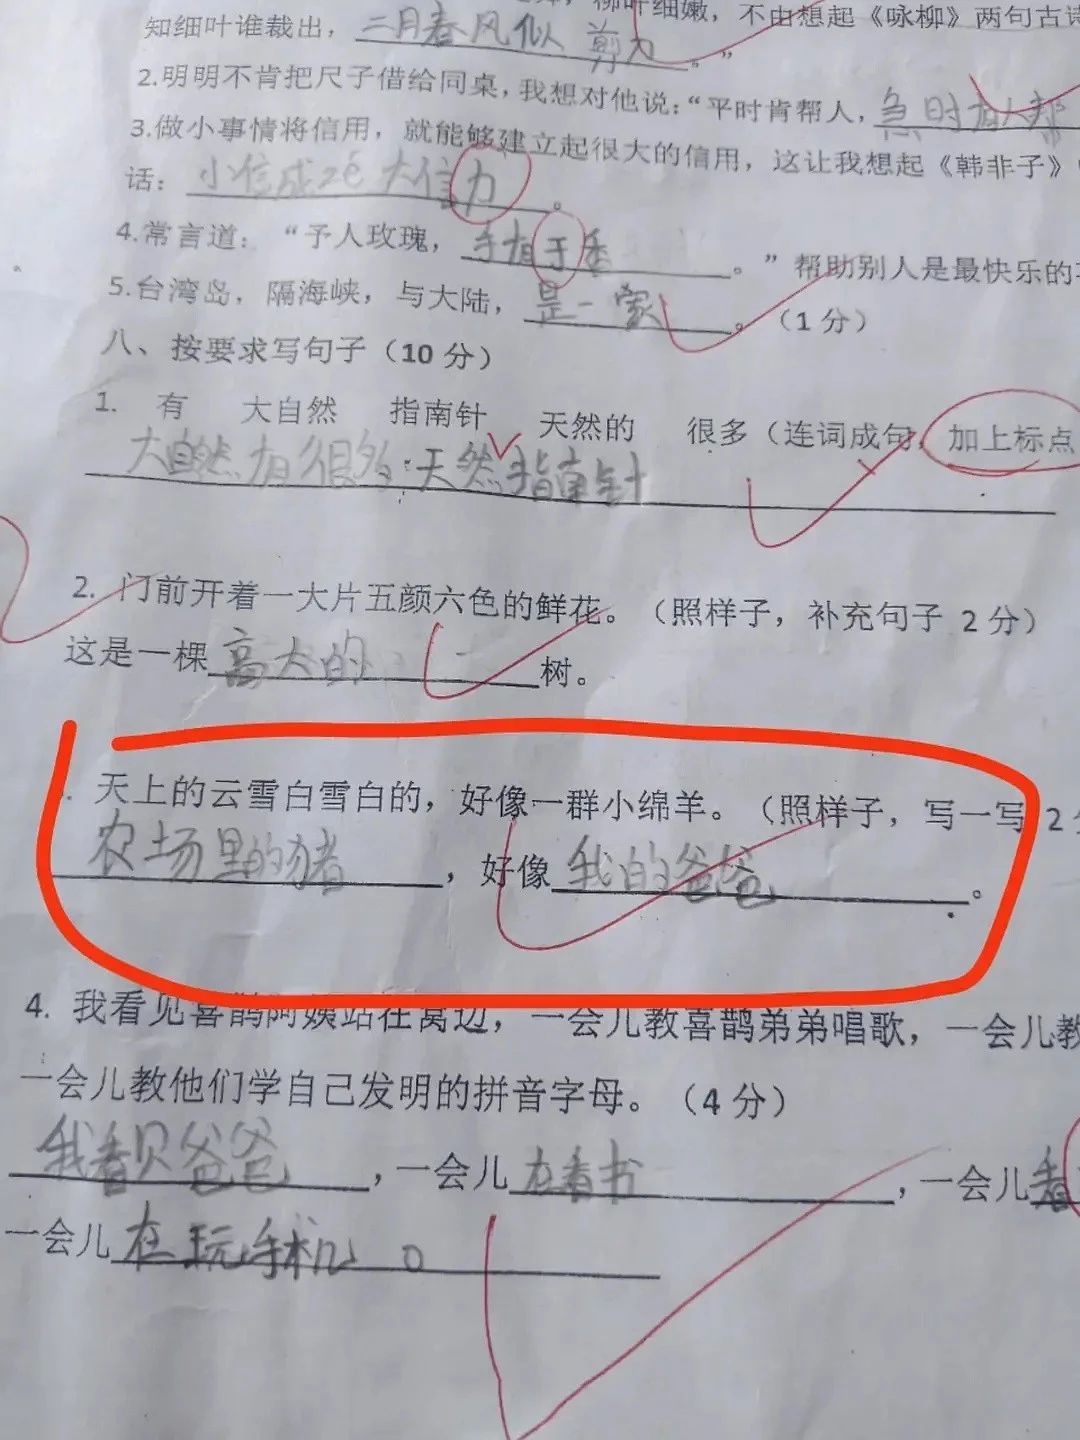 柳叶细嫩，不由想起《咏柳》两句古诗
知细叶谁裁出，二月春风似 剪刀。”
2.明明不肯把尺子借给同桌，我想对他说：“平时肯帮人，急时有人帮
3.做小事情将信用，就能够建立起很大的信用，这让我想起《韩非子》
话：小信成 大信力。
4.常言道：“予人玫瑰，手有于香。”帮助别人是最快乐的
5.台湾岛，隔海峡，与大陆，是一家。（1分）
八、按要求写句子（10分）
1. 有 大自然 指南针 天然的 很多（连词成句，加上标点
大自然有很多天然指南针
2. 门前开着一大片五颜六色的鲜花。（照样子，补充句子 2分）
这是一棵高大的树。
. 天上的云雪白雪白的，好像一群小绵羊。（照样子，写一写 2分
农场里的猪，好像我的爸爸。
4. 我看见喜鹊阿姨站在窝边，一会儿教喜鹊弟弟唱歌，一会儿教
一会儿教他们学自己发明的拼音字母。（4分）
我看见爸爸，一会儿在看书，一会儿看
一会儿在玩手机。